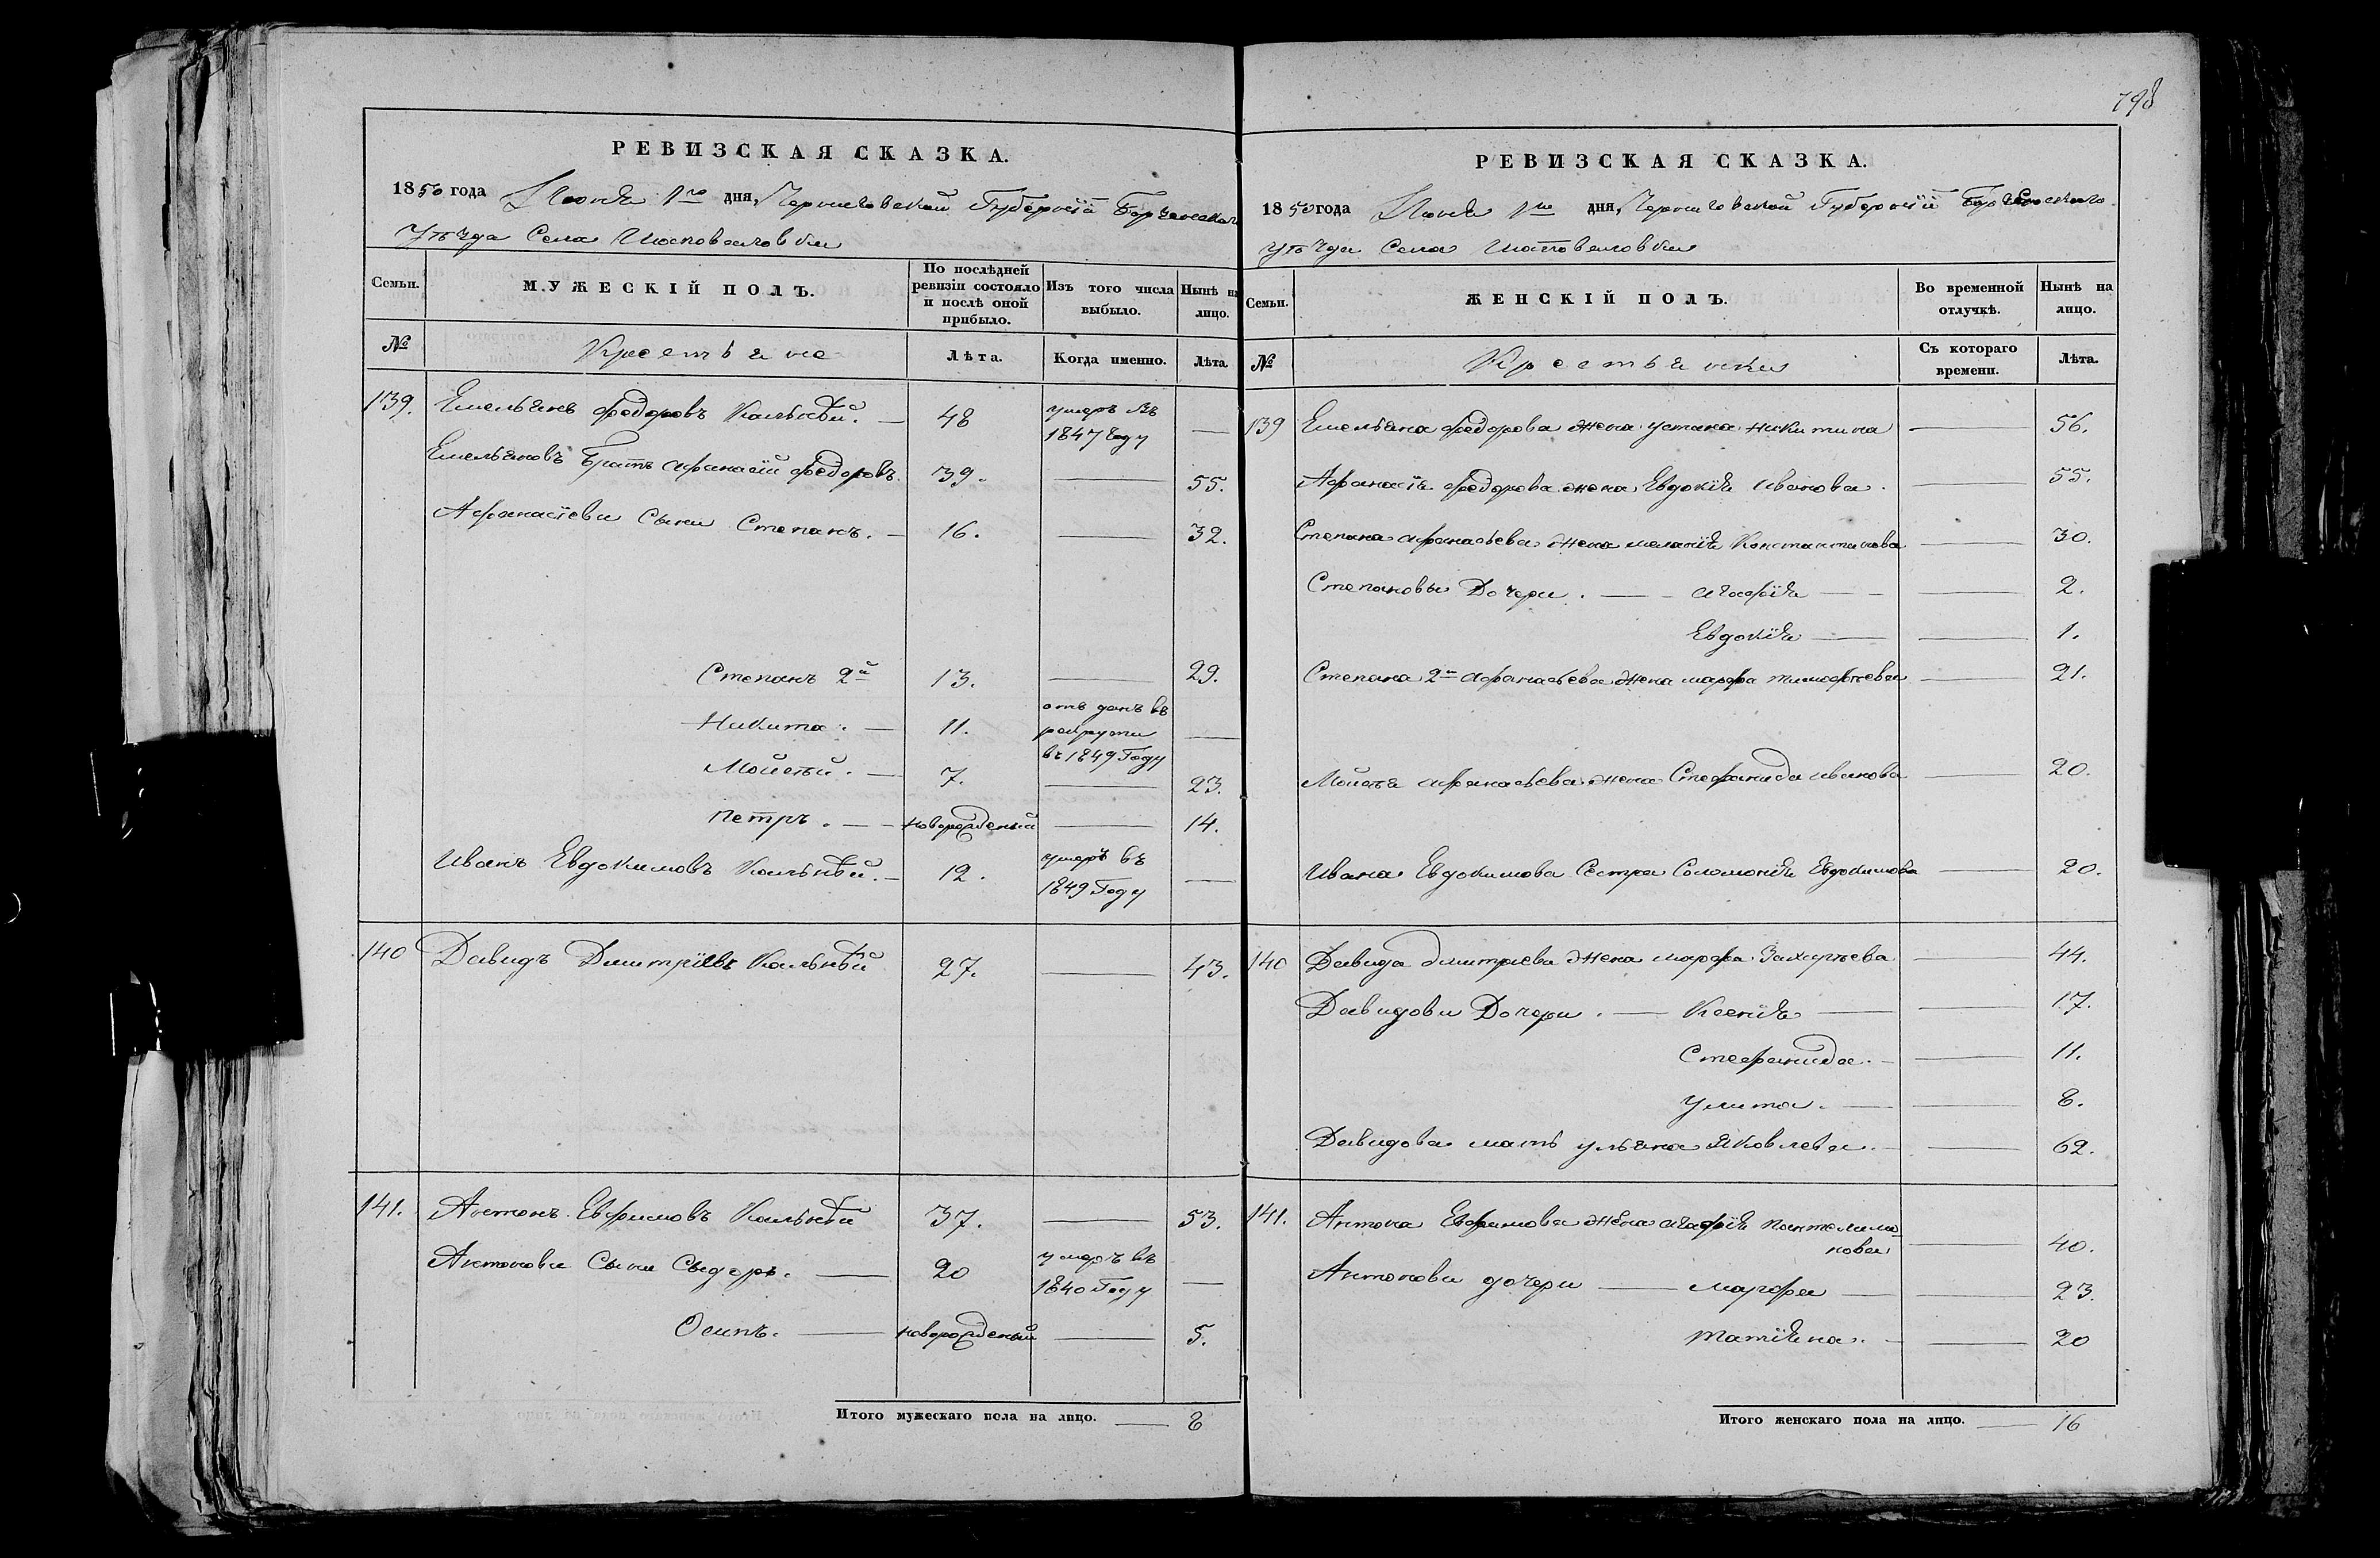 798
РЕВИЗСКАЯ СКАЗКА.
1850 года Июня 1го дня, Черниговской Губернiи Борзенского
Уѣзда Села Шаповаловки
Семьи. МУЖЕСКIЙ ПОЛЪ. По послѣдней ревизiи состояло и послѣ оной прибыло. Изъ того числа выбыло. Нынѣ на лицо.
№ Крестьяне Лѣта. Когда именно. Лѣта
139. Емельянъ Федоровъ 48 умеръ въ 1847 Году —
Емельяновъ Братъ Афанасiй Федоровъ. 39. — 55.
Афанасiеви Сыни Степанъ. — 16. — 32.
Степанъ 2й 13. — 29.
Никита. — 11. отъ данъ въ рекрути въ 1849 Году —
Мойсѣй. — 7. — 23.
Петръ. — новорожденый — 14.
Иванъ Евдокимовъ 12. умеръ въ 1849 Году —
140 Давидъ Дмитрiевъ 27. — 43.
141. Антонъ Евфимовъ 37. — 53.
Антонови Сыни Сыдоръ. — 20 умеръ въ 1840 Году —
Осипъ. — новорожденый — 5.
Итого мужескаго пола на лицо. — 8
РЕВИЗСКАЯ СКАЗКА.
1850 года Июня 1го дня, Черниговской Губернiй Борзенского
Уѣзда Села Шаповаловки
Семьи. ЖЕНСКIЙ ПОЛЪ. Во временной отлучкѣ. Нынѣ на лицо.
№ Крестьянки Съ котораго времени. Лѣта.
139 Емельяна Федорова жена Никитина — 56.
Афанасiя Федорова жена Евдокiя Иванова. — 55.
Степана Афанасьева жена меланiя Константинова — 30.
Степановы Дочери. — агафiя — 2.
Евдокiя — 1.
Степана 2й Афанасьева жена марфа тимофѣева — 21.
Мойсѣя афанасьева жена Стефанида иванова — 20.
Ивана Евдокимова Сестра Соломонiя Евдокимова — 20.
140 Давида Дмитриева жена марфа Захарьева — 44.
Давидови Дочери. — Ксенiя — 17.
Стефанида. — 11.
улита. — 8.
Давидова мать ульяна Яковлева. — 62.
141. Антона Евфимова жена агафiя пантелимо
нова — 40.
Антонови дочери — марфа — 23.
татiяна. — 20
Итого женскаго пола на лицо. — 16